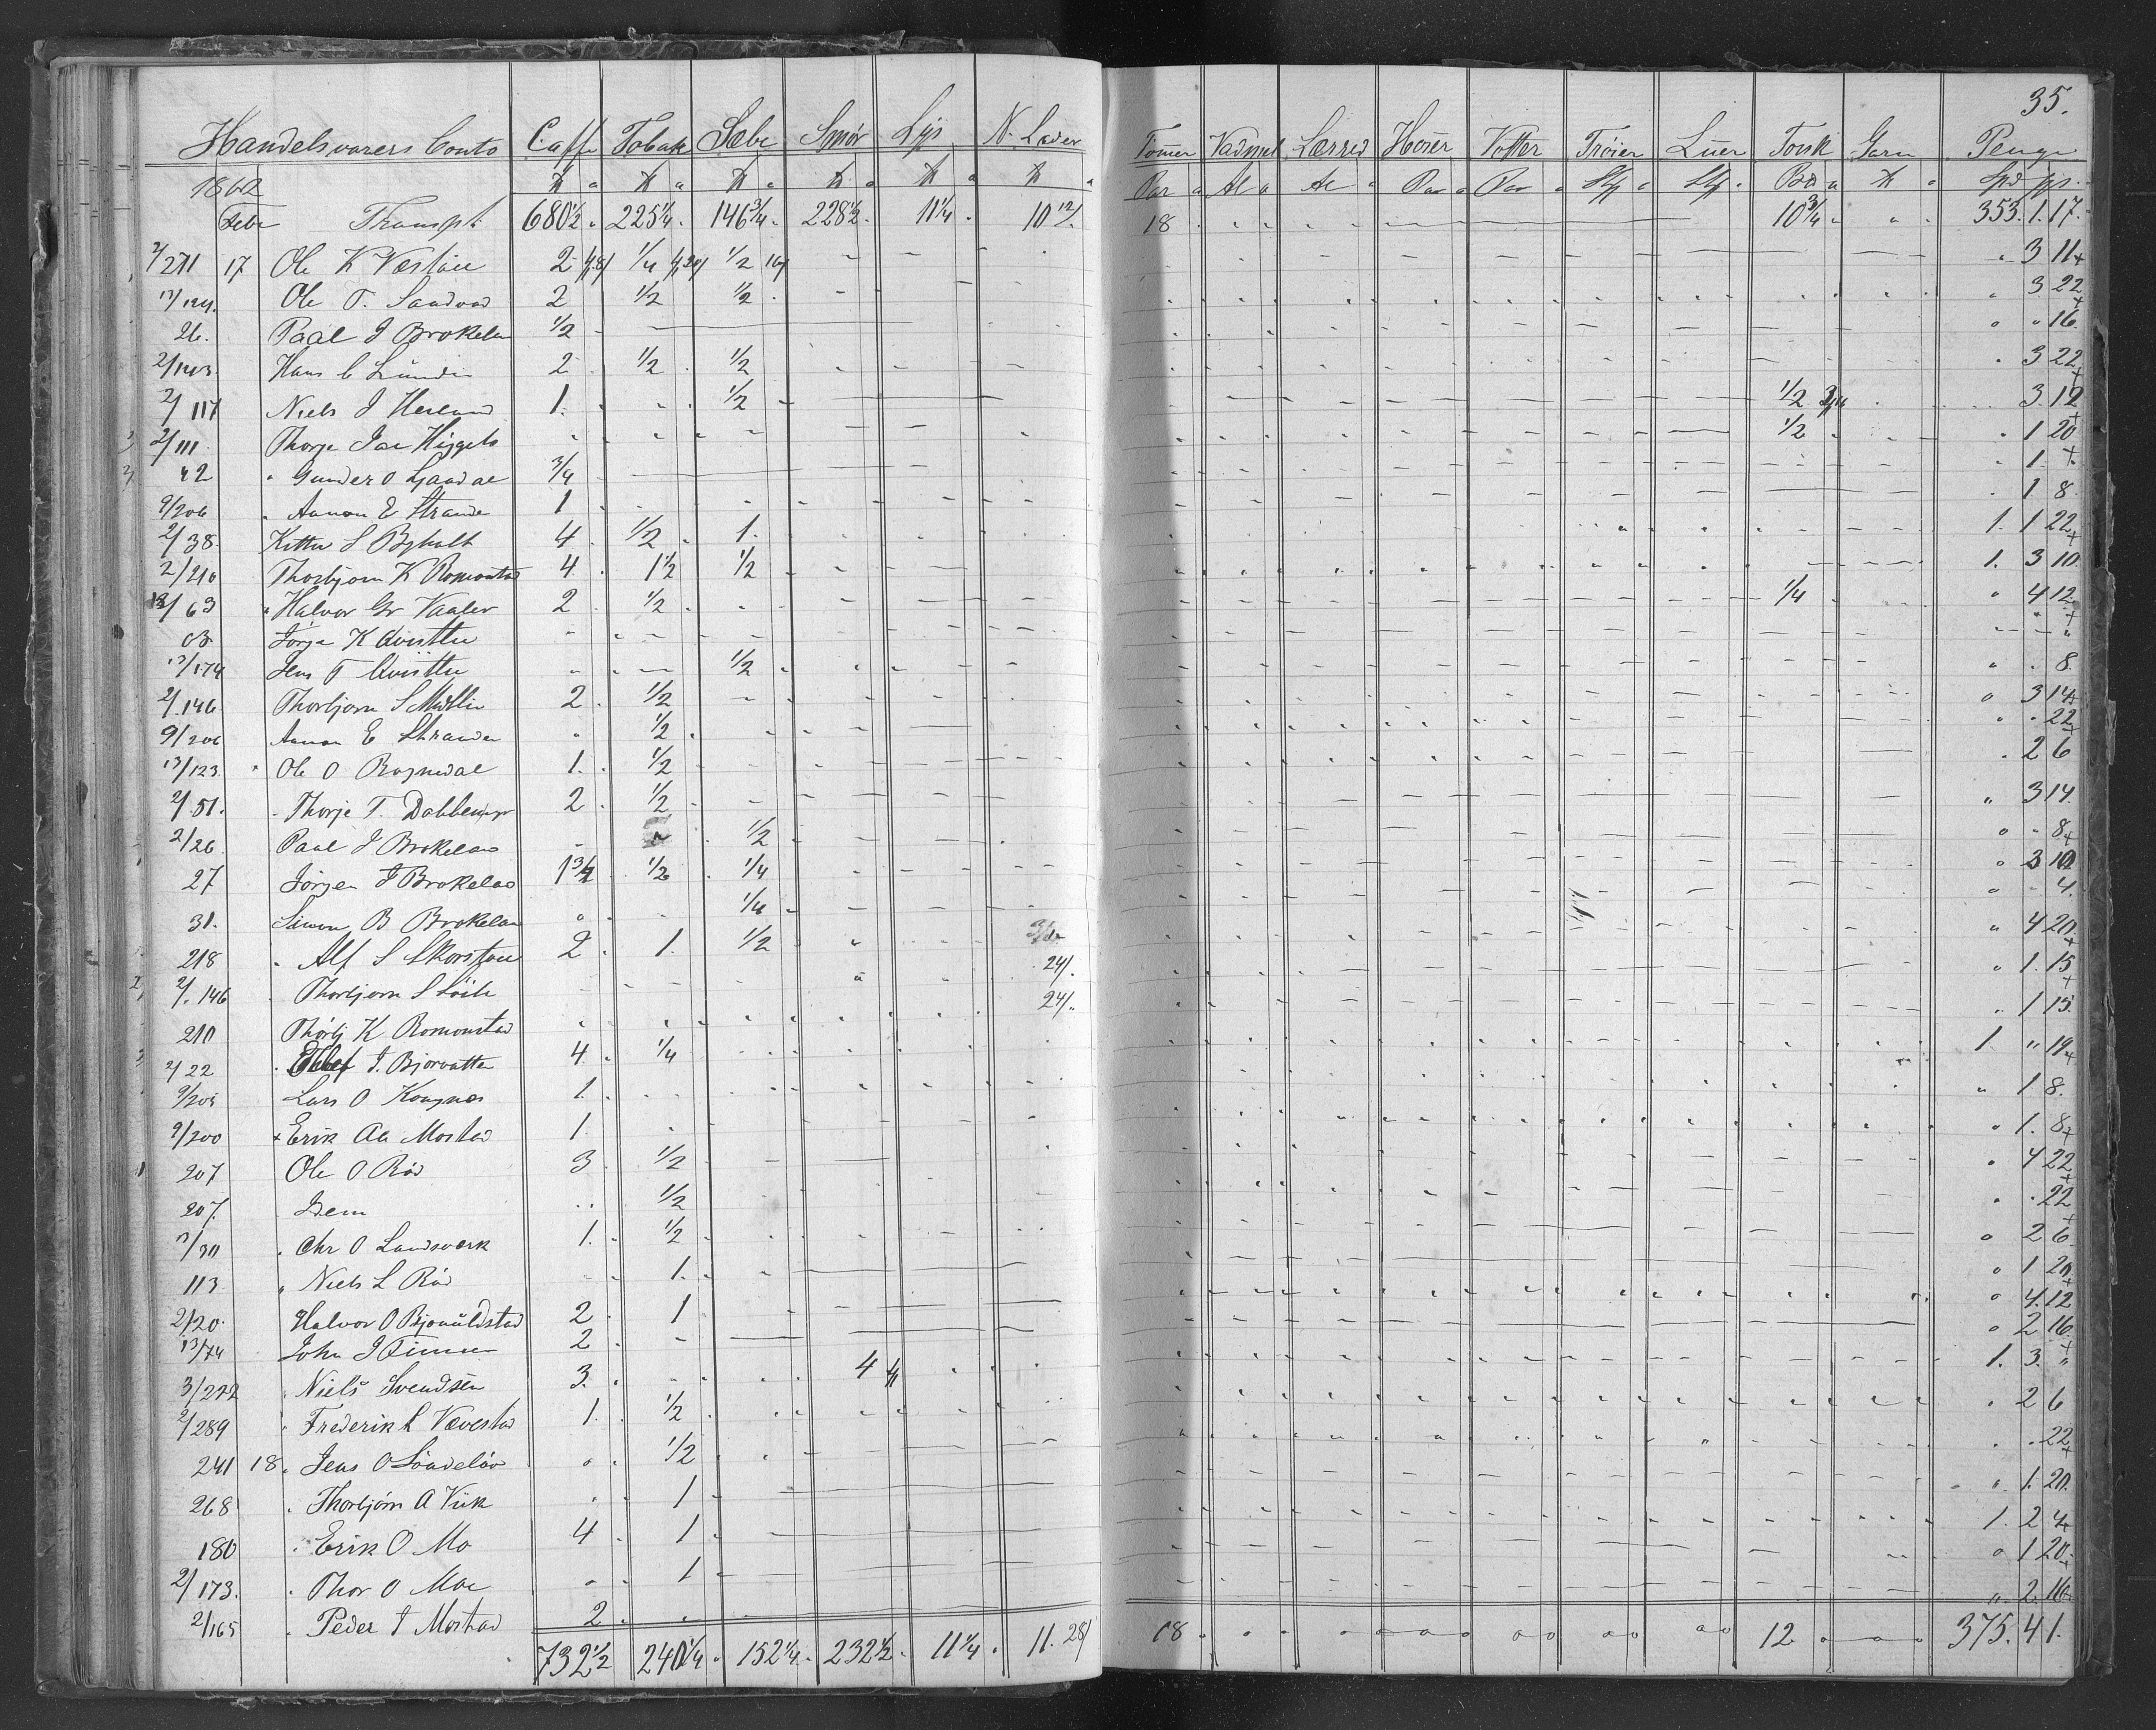 35.
Handelsvarers Conto Caffe Tobak Sæbe Smør Lys N. Læder Tømer Vadmel Lærred Hoser Votter Trøier Luer Torsk Garn Penge
1862 ℔ ℔ ℔ ℔ ℔ ℔ Par Al Al Par Par Stk Stk Bd ℔ Spd
Febr Transpt 680 1/2 225 1/4 146 3/4 228 1/2 11 1/4 10 12/ 18 10 3/4 353. 1. 17.
2/271 17 Ole K Væstøl 2 1/4 1/2 16/ 3 11
13/124. Ole T. Sandvad 2 1/2 1/2 3 22
26. Paal J Brokelan 1/2 16
2/143 Hans C Lunden 2 1/2 1/2 3 22
2/117 Niels J Hesland 1. 1/2 1/2 3. 12
2/111 Thorje 1/2 1 20
42 Gunder O Ljaadal 3/4 1
9/206 Aanon E Strande 1 1 8
2/38 Kittel S Byholt 4 1/2 1. 1. 1 22
2/210 Thorbjørn K Romonstad 4 1 1/2 1/2 1. 3 10
13/63 Halvor Gr Vaaler 2 1/2 1/4 4 12
Jørgen K
13/174 Jens T 1/2 8
2/146 Thorbjørn S 2 1/2 3 14
9/206 Aanon E Strande 1/2 22
13/123 Ole O Rognedal 1. 1/2 2 6
2/51. Thorje T. 2 1/2 3 14
2/26 Paal J Brokelan 1/2 8
27 Jørgen J Brokelan 1 3/4 1/2 1/4 3 10
31. Simon B Brokelan 1/4 4.
218 Alf S Skorstøl 2 1. 1/2 4 20
2/146 Thorbjørn S 24/. 1. 15
210 Thorbj K Romonstad 24/. 1 15
2/22 J. Bjorvatten 4 1/4 1. 19
9/205 Lars O Kongnæs 1. 1 8.
9/200 Erik Aa Mostad 1. 1. 8
207 Ole O Rød 3 1/2 4 22
207. Dem 1/2 22
13/30 Chr O Landsværk 1. 1/2 2 6
113 Niels L Rød 1. 1 20
2/20 Halvor O 2 1 4. 12
13/74 John J 2 2 16
3/222 Niels Svendsen 3. 4 1. 3.
2/289 Frederik L Vævestad 1. 1/2 2 6
241 18. Jens O Søndeløv 1/2 22
268 Thorbjørn A Viik 1 1. 20.
180 Erik O Mo 4 1 1. 2 4
2/173. Thor O Moe 1 1 20
2/165 Peder J Mostad 2 2 16
732 1/2 240 1/4 152 1/4 232 1/2 11 1/4 11. 28/ 18 12 375. 4 1.